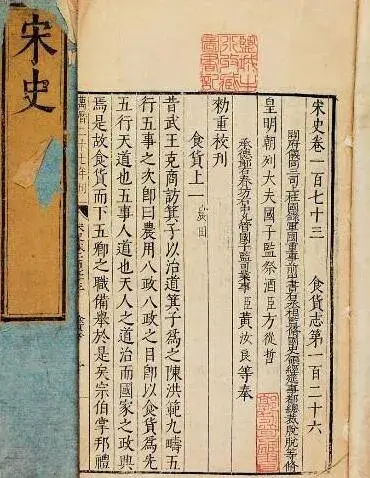 宋史
宋史卷一百七十三 食貨志第一百二十六
開府儀同三司上柱國錄軍國重事前中書右丞相監修國史領經筵事都總裁脫脫等修
皇明朝列大夫國子監祭酒臣方從哲
承德郎右春坊右中允管國子監司業事臣黃汝良等奉
勑重校刊
食貨上一 農田
昔武王克商訪箕子以治道箕子爲之陳洪範九疇五
行五事之次卽曰農用八政八政之目卽以食貨爲先
五行天道也五事人道也天人之道治而國家之政興
焉是故食貨而下五卿之職備舉於是矣宗伯掌邦禮
年刊
食貨